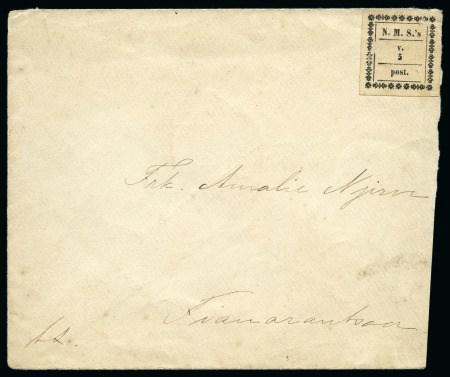 N. M. S.'s
v.
5
post.
Frk. Amalie
Fianarantsoa